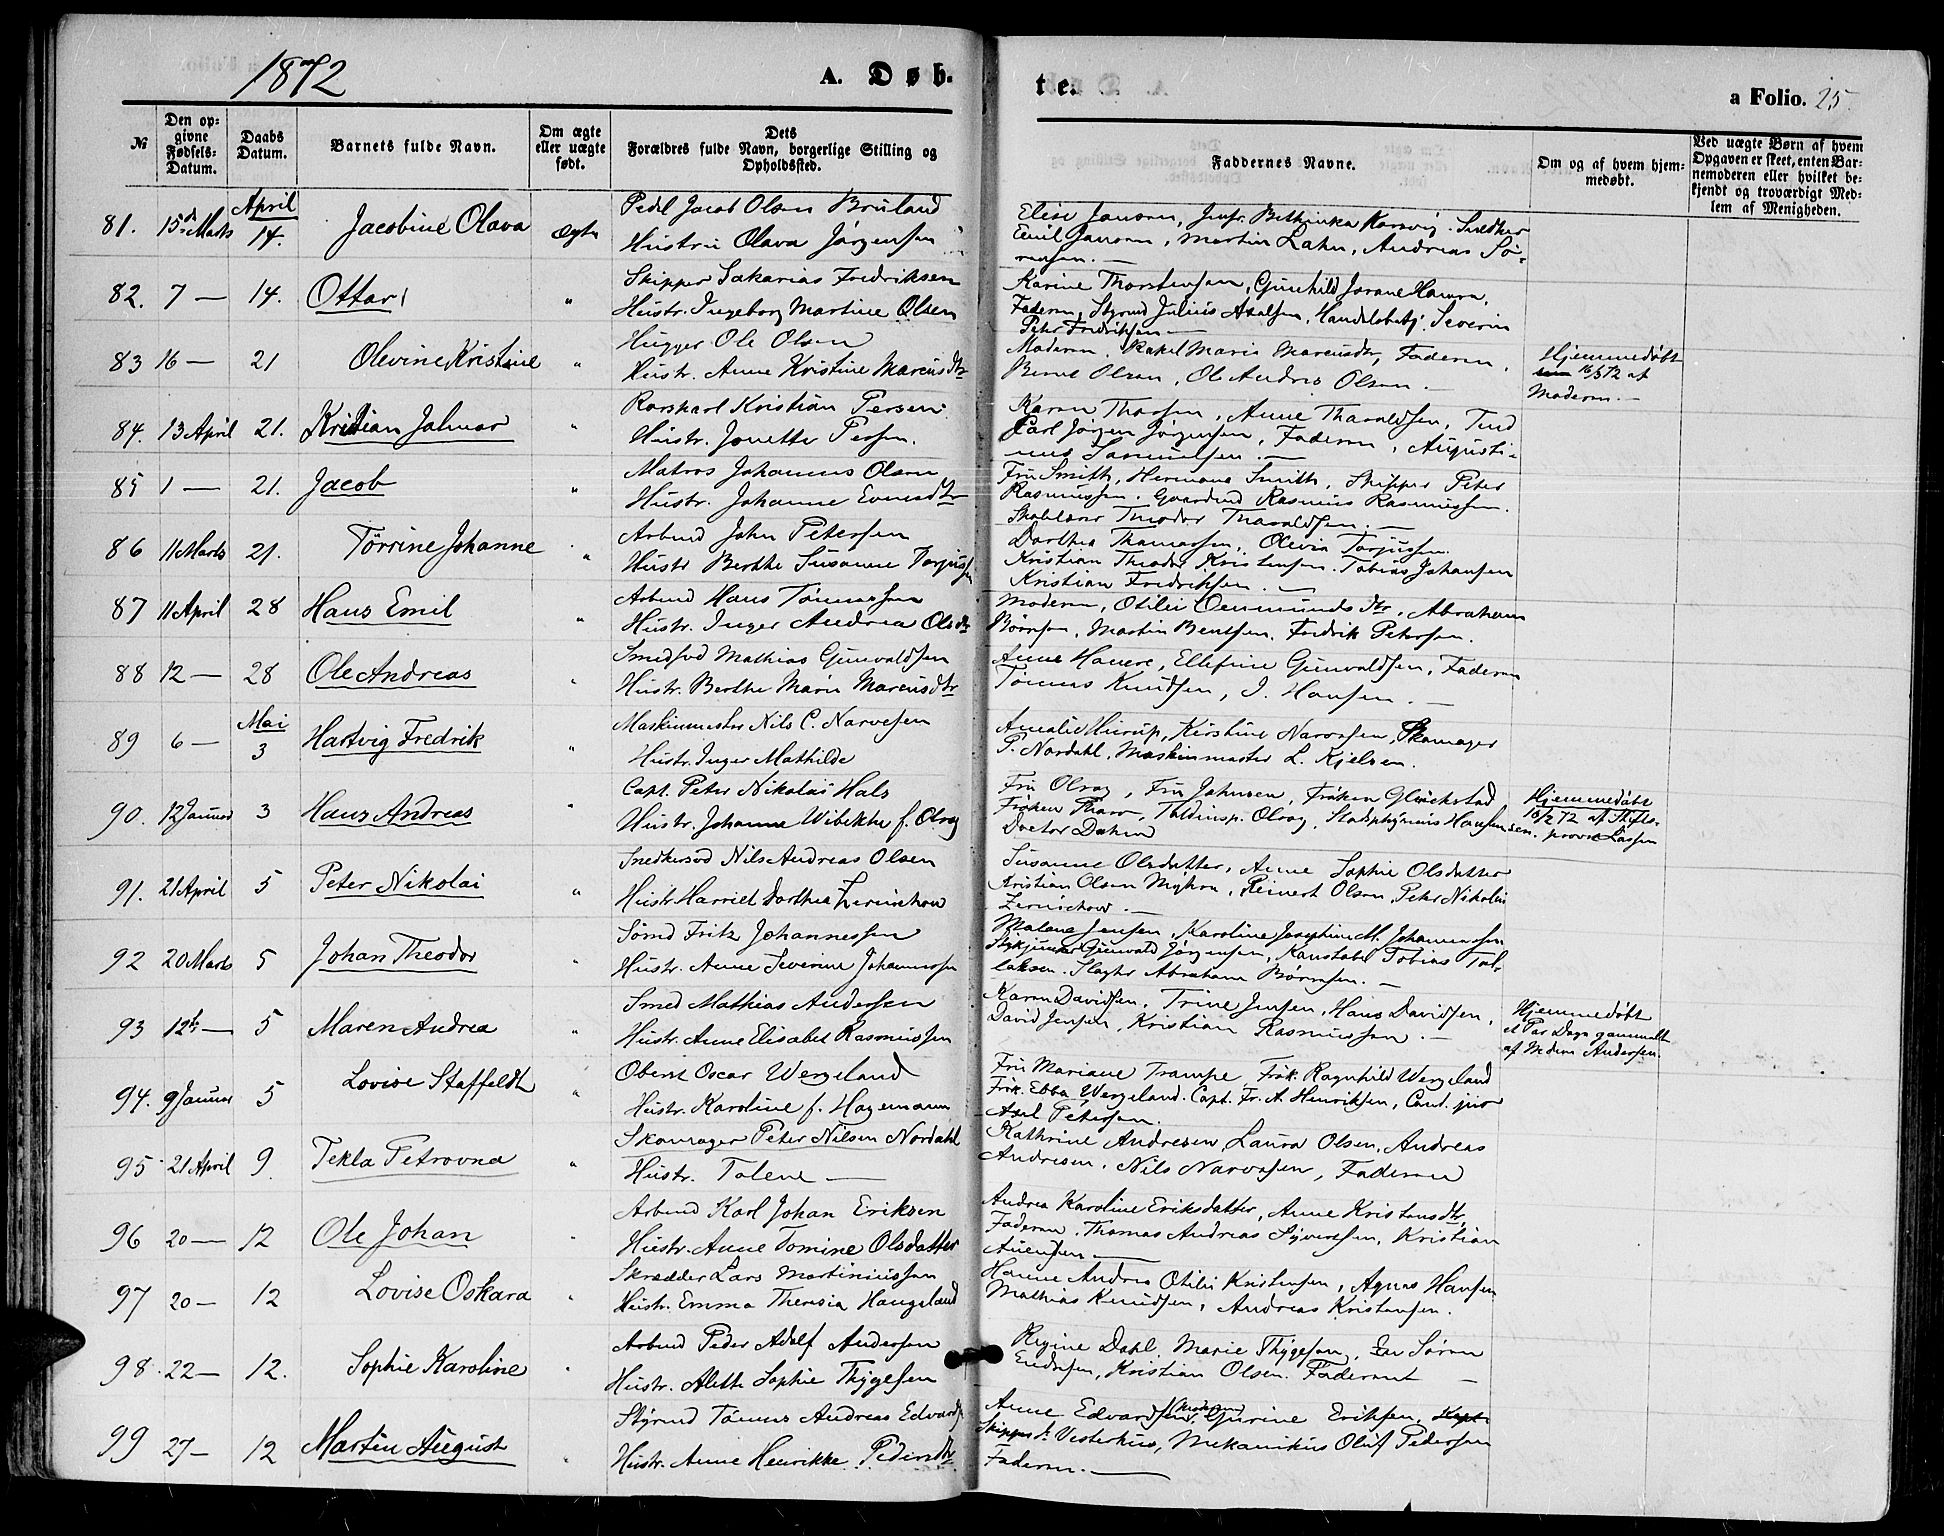 1872
A. Døb-
te.
a Folio. 25.
№
Den op-
givne
Fødsels-
Datum.
Daabs
Datum.
Barnets fulde Navn.
Om ægte
eller uægte
født.
Dets
Forældres fulde Navn, borgerlige Stilling og
Opholdssted.
Faddernes Navne.
Om og af hvem hjem-
medøbt.
Ved uægte Børn af hvem
Opgaven er skeet, enten Bar-
nemoderen eller hvilket be-
kjendt og troværdigt Med-
lem af Menigheden.
April
81. 15de Marts 14. Jacobine Olava Ægte
Pedel Jacob Olsen Bruland
Hustru Olava Jørgensen
Elise Jansen, Jmfr. Bethinka Snedker
Emil Jansen, Martin Lahn, Andreas Sø-
rensen. —
82. 7 — 14. Ottar "
Skipper Sakarias Fredriksen
Hustr. Ingeborg Martine Olsen
Karine Thorstensen, Gunhild
Faderen, Styrmd Julius Axelsen, Handelsbetj. Severin
Peter Fredriksen —
83 16 — 21 Olevine Kristine "
Hugger Ole Olsen
Hustr. Anne Kristine Marcusdtr
Moderen, Rakel Marie Marcusdtr, Faderen,
Bernt Olsen, Ole Andreas Olsen. —
Hjemmedøbt
16/3 72 af
Moderen. —
84. 13 April 21. Kristian Jalmar "
Rorskarl Kristian Persen
Hustr. Jonette Persen.
Karen Thorsen, Anne Tharaldsen, Tmd
Carl Jørgen Jørgensen, Faderen, Augusti-
nus Samuelsen. —
85 1 — 21. Jacob "
Matros Johannes Olsen
Hustr. Johanne Evensdtr
Fru Smith, Hermana Smith, Skipper Peter
Rasmussen, Gaardmd Rasmus Rasmussen.
Theodor Tharaldsen. —
86 11 Marts 21. Tørrine Johanne "
Arbmd John Petersen
Hustr Berthe Susanne Torjussen
Dorthea Thomassen, Olevia Torjussen.
Kristian Theodor Kristensen. Tobias Johansen
Kristian Fredriksen. —
87 11 April 28 Hans Emil "
Arbmd Hans Tønnessen
Hustr. Inger Andrea Olsdtr
Moderen, Otilie Oenmundsdtr, Abraham
Børresen, Martin Bentsen, Fredrik Petersen.
88 12 — 28 Ole Andreas "
Smedsvd Mathias Gunvaldsen
Hustr. Berthe Marie Marcusdtr
Anne Hauere, Ellefine Gunvaldsen, Faderen
Tønnes Knudsen, J. Hansen. —
Mai
89 6 — 3 Hartvig Fredrik "
Maskinmester Nils C. Narvesen
Hustr. Inger Mathilde
Amalie Hirup, Kirstine Narvesen, Skomager
P. Nordahl, Maskinmester L. Kjelsen.
90. 12 Januar 3 Hans Andreas "
Capt. Peter Nikolai Hals
Hustr. Johanna Wibekke f. Olrog
Fru Olrog, Fru Johnsen, Frøken Glückstad
Frøken Thaw, Toldinsp. Olrog, Stadsphysicus Hansen
Doctor
Hjemmedøbt
18/2 72 af Stifts-
provst Lassen
91. 21 April 5 Peter Nikolai "
Snedkersvd Nils Andreas Olsen
Hustr. Harriet Dorthea Zernichow
Susanne Olsdatter, Anne Sophie Olsdatter
Kristian Olsen Myhre, Reinert Olsen, Peter Nikolai
Zernichow. —
92 20 Marts 5 Johan Theodor "
Sømd Fritz Johannessen
Hustr. Anne Severine Johannessen
Malene Jensen, Karoline Josephine M. Johannessen
Stykjunker Gunvald Jørgensen, Konstabel Tobias Tol-
laksen. Slagter Abraham Børresen. —
93 12te — 5 Maren Andrea "
Smed Mathias Andersen
Hustr. Anne Elisabet Rasmussen
Karen Davidsen, Trine Jensen, Hans Davidsen,
David Jensen, Kristian Rasmussen. —
Hjemmedøbt
et Par Dage gammelt
af Andersen.
94. 9 Januar 5 Lovise Staffeldt "
Oberst Oscar Wergeland
Hustr. Karoline f. Hagemann
Fru Mariane Trampe, Frøk. Ragnhild Wergeland
Frøk. Ebba Wergeland. Capt. Fr. A. Henriksen, Cand. jur
Axel Petersen.
95 21 April 9. Tekla Petrovna "
Skomager Peter Nilsen Nordahl
Hustr. Tolene —
Kathrine Andresen, Laura Olsen, Andreas
Andresen, Nils Narvesen, Faderen
96 20 — 12 Ole Johan "
Arbmd Karl Johan Eriksen
Hustr. Anne Tomine Olsdatter
Andrea Karoline Eriksdatter, Anne Kristensdtr,
Faderen, Thomas Andreas Syvertsen, Kristian
Auensen —
97 20 — 12 Lovise Oskara "
Skrædder Lars Martiniussen
Hustr. Emma Theresia Haugeland
Hanne Andrea Otilie Kristensen, Agnes Hansen
Mathias Knudsen, Andreas Kristensen.
98. 22 — 12. Sophie Karoline "
Arbmd Peder Adolf Andersen
Hustr. Alette Sophie Thygesen
Regine Dahl, Marie Thygesen, Søren
Endresen, Kristian Olsen. Faderen —
99 27 — 12 Martin August "
Styrmd Tønnes Andreas Edvards
Hustr. Anne Henrikke Pedersdtr
Anne Edvardsen, (Moderen) Gurine Eriksen, Kapt.
Skipper S. Vesterhus, Mekanikus Oluf Pedersen
Faderen. —